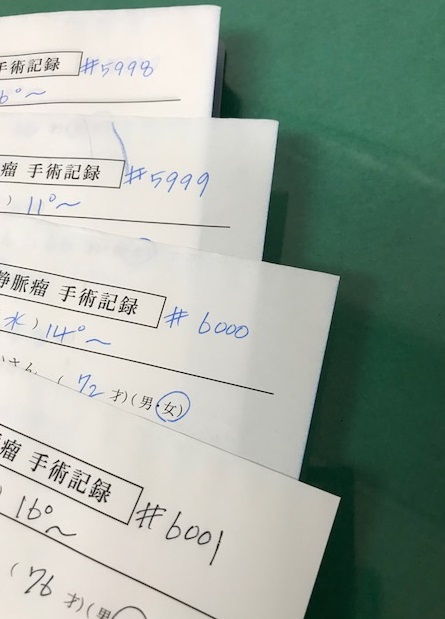 手術記録 #5998
6°〜
瘤 手術記録 #5999
) 11°〜
静脈瘤 手術記録 #6000
水) 14°〜
さん (72才)(男・女)
瘤 手術記録 #6001
) 16°〜
(76才)(男